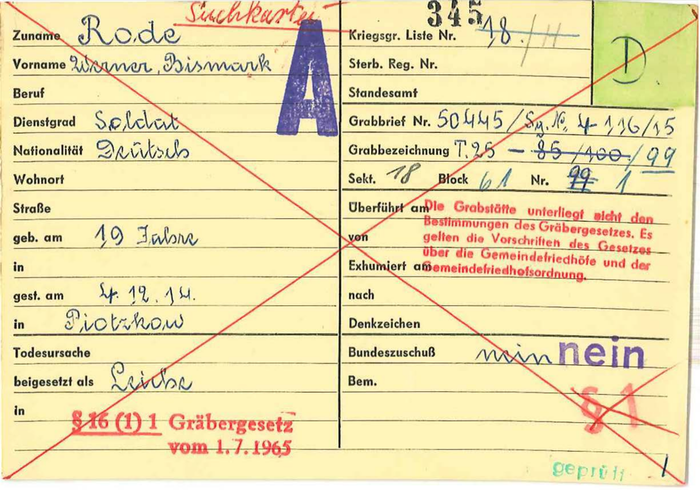 Suchkartei
345
Zuname Rode
Vorname Werner, Bismark
Beruf
Dienstgrad Soldat
Nationalität Deutsch
Wohnort
Straße
geb. am 19 Jahre
in
gest. am 4.12.14.
in Piotzkow
Todesursache
beigesetzt als Leiche
in
§ 16 (1) 1 Gräbergesetz
vom 1.7.1965
A
Kriegsgr. Liste Nr. 18.
D
Sterb. Reg. Nr.
Standesamt
Grabbrief Nr. 50445/ 4-116/15
Grabbezeichnung T.25 - 85/100/99
Sekt. 18 Block 61 Nr. 99 1
Überführt am
von
Exhumiert am
nach
Denkzeichen
Die Grabstätte unterliegt nicht den
Bestimmungen des Gräbergesetzes. Es
gelten die Vorschriften des Gesetzes
über die Gemeindefriedhöfe und der
Gemeindefriedhofsordnung.
Bundeszuschuß nein nein
Bem.
§ 1
geprüft